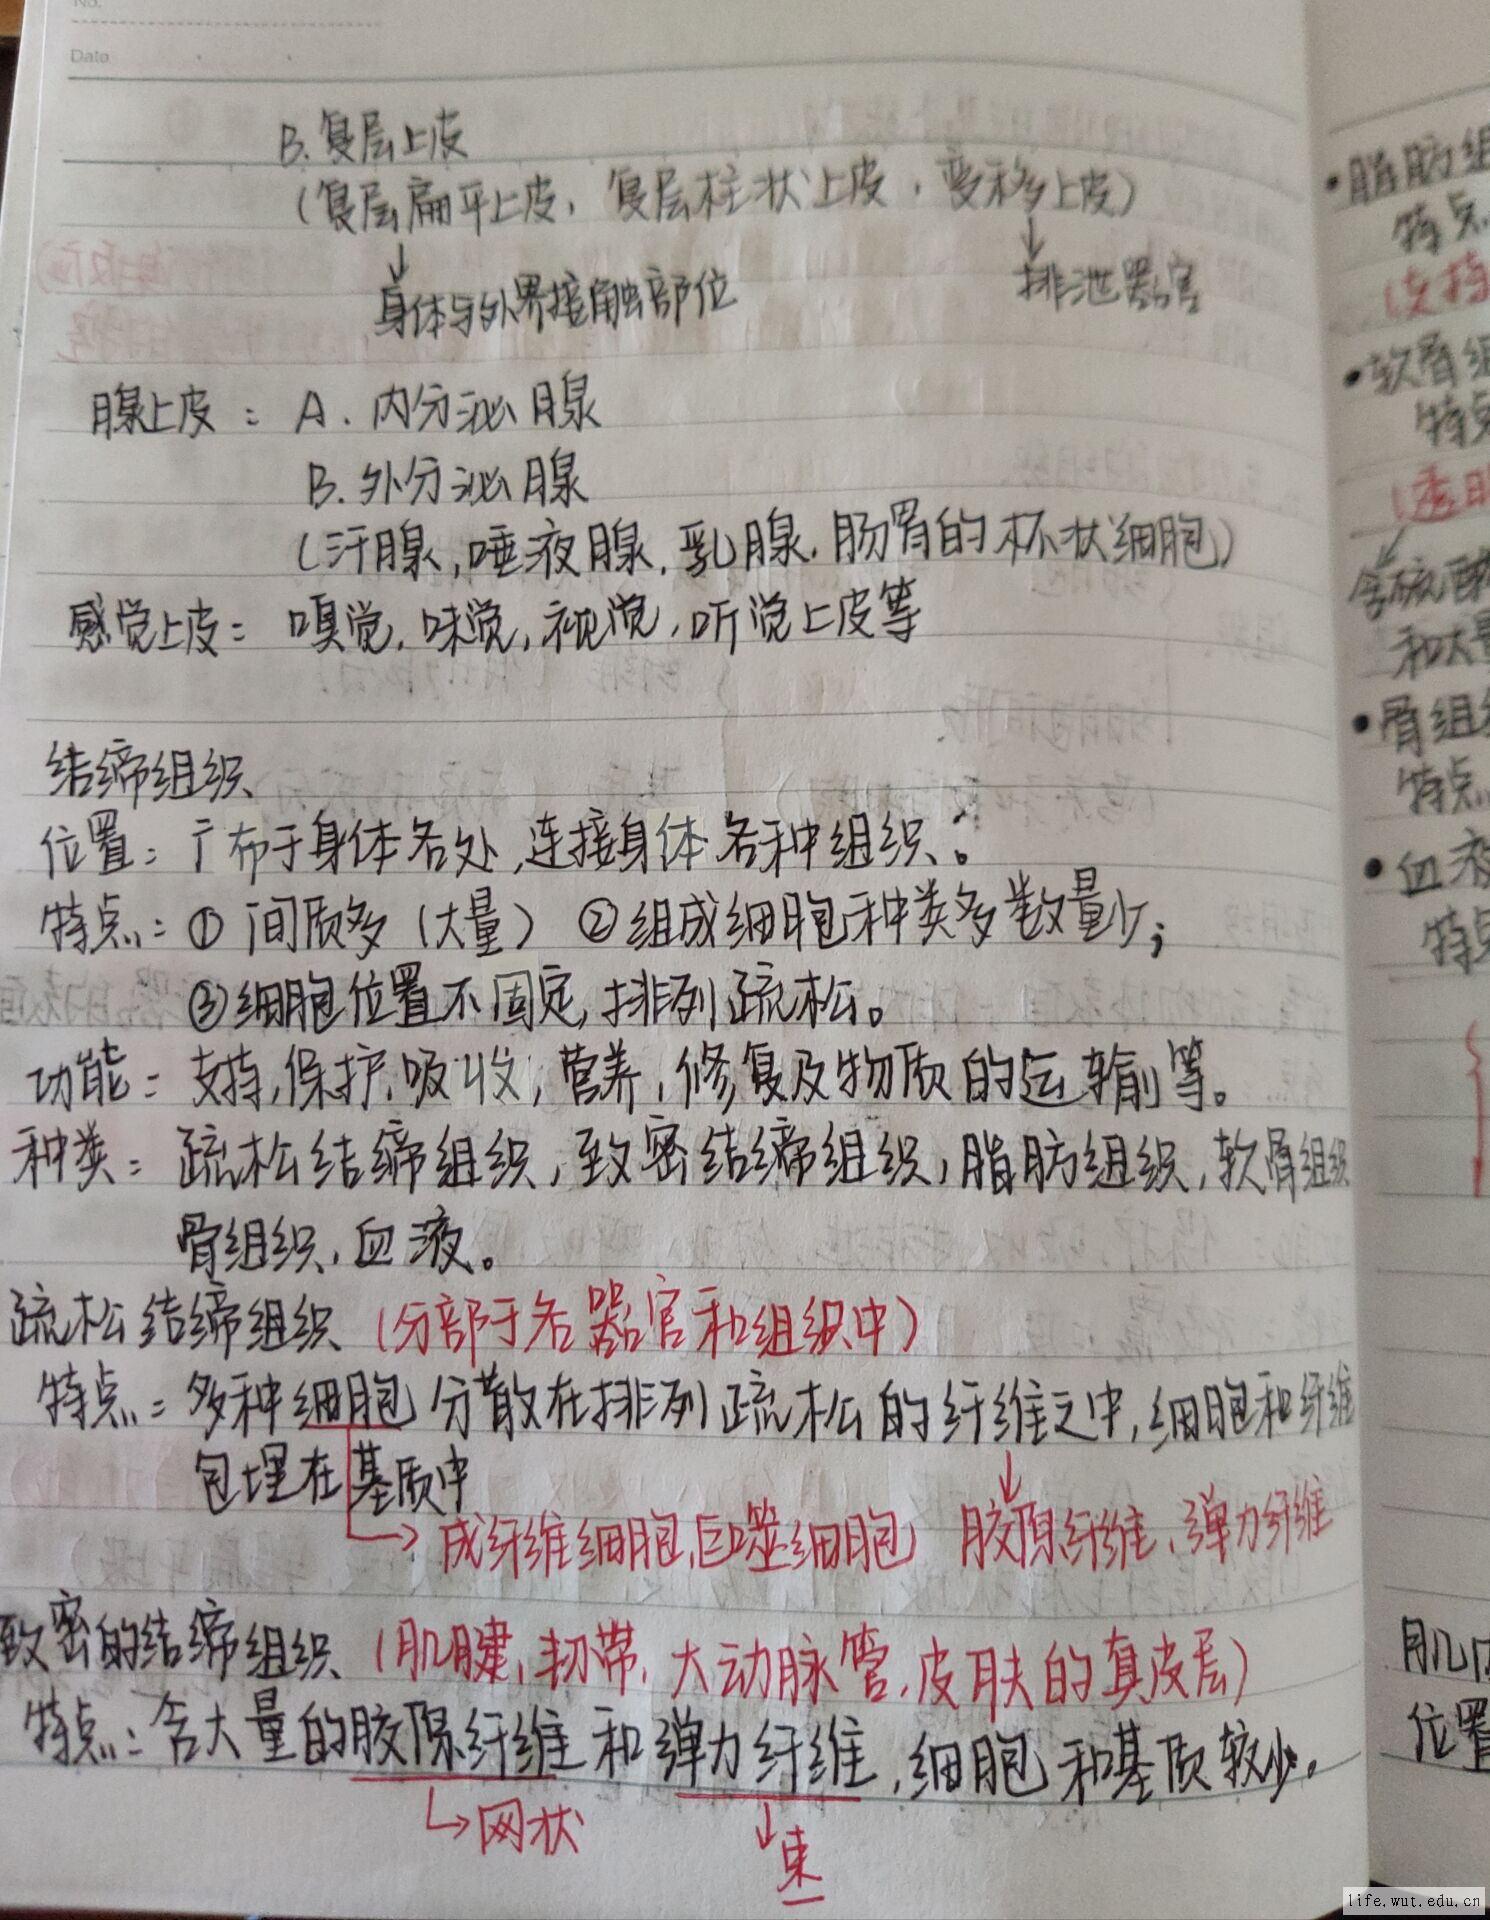 No.
Date
B. 复层上皮
(复层扁平上皮, 复层柱状上皮, 变移上皮)
↓ ↓
身体与外界接触部位 排泄器官
腺上皮: A. 内分泌腺
B. 外分泌腺
(汗腺,唾液腺,乳腺,肠胃的杯状细胞)
感觉上皮: 嗅觉,味觉,视觉,听觉上皮等
结缔组织
位置: 广布于身体各处,连接身体各种组织。
特点: ① 间质多 (大量) ②组成细胞种类多数量少;
③细胞位置不固定,排列疏松。
功能: 支持,保护,吸收,营养,修复及物质的运输等。
种类: 疏松结缔组织,致密结缔组织,脂肪组织,软骨组织
骨组织,血液。
疏松结缔组织 (分部于各器官和组织中)
特点: 多种细胞分散在排列疏松的纤维之中,细胞和纤维
包埋在基质中
→成纤维细胞,巨噬细胞 ↓胶原纤维,弹力纤维
致密的结缔组织 (肌腱,韧带,大动脉管,皮肤的真皮层)
特点: 含大量的胶原纤维和弹力纤维,细胞和基质较少。
→网状 ↓
束
•脂肪组
特点
(支持
•软骨组
特点
(透明
含硫酸
和大量
•骨组织
特点
•血液
特点
肌肉
位置
life.wut.edu.cn